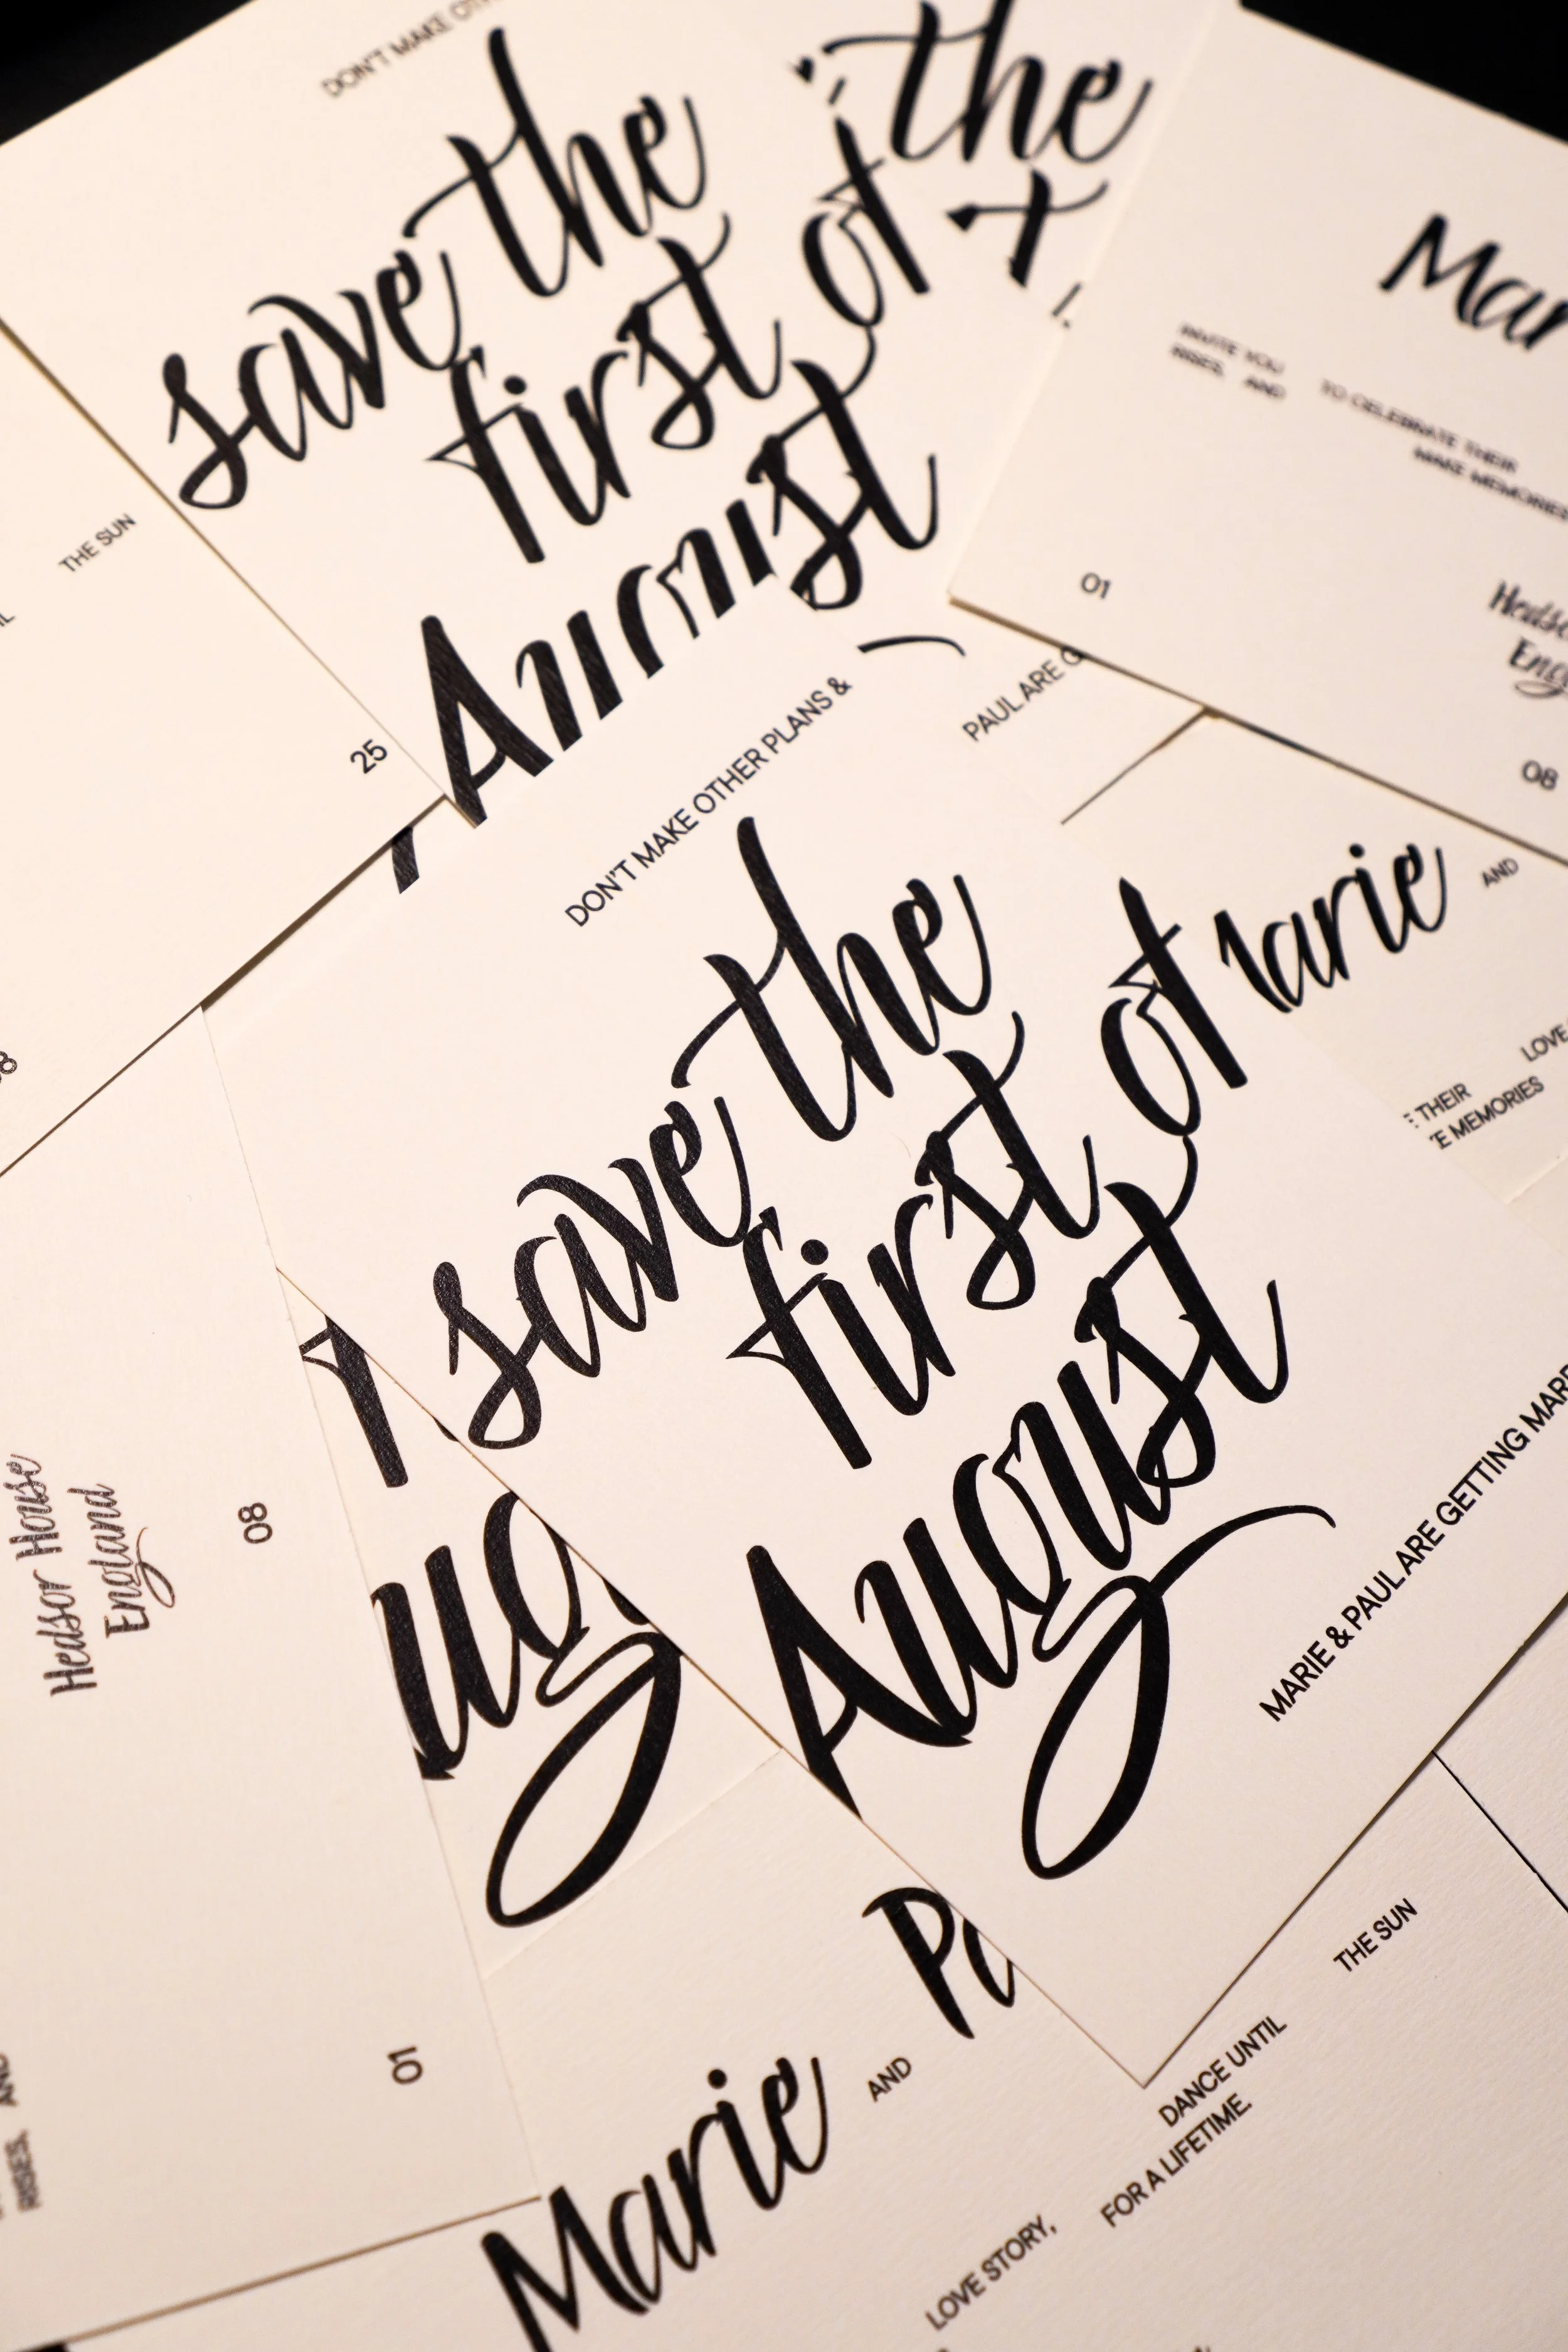 DON'T MAKE
save the
first of
August
the
Mar
INVITE YOU
RISES, AND
TO CELEBRATE THEIR
MAKE MEMORIES
01
08
THE SUN
25
PAUL ARE G
DON'T MAKE OTHER PLANS &
save the
first of
August
MARIE & PAUL ARE GETTING MARR
arie
AND
LOVE
THEIR
MEMORIES
Hedsor House
England
08
01
RISES, AND
ug
Marie
AND
Pa
LOVE STORY,
DANCE UNTIL
THE SUN
FOR A LIFETIME.